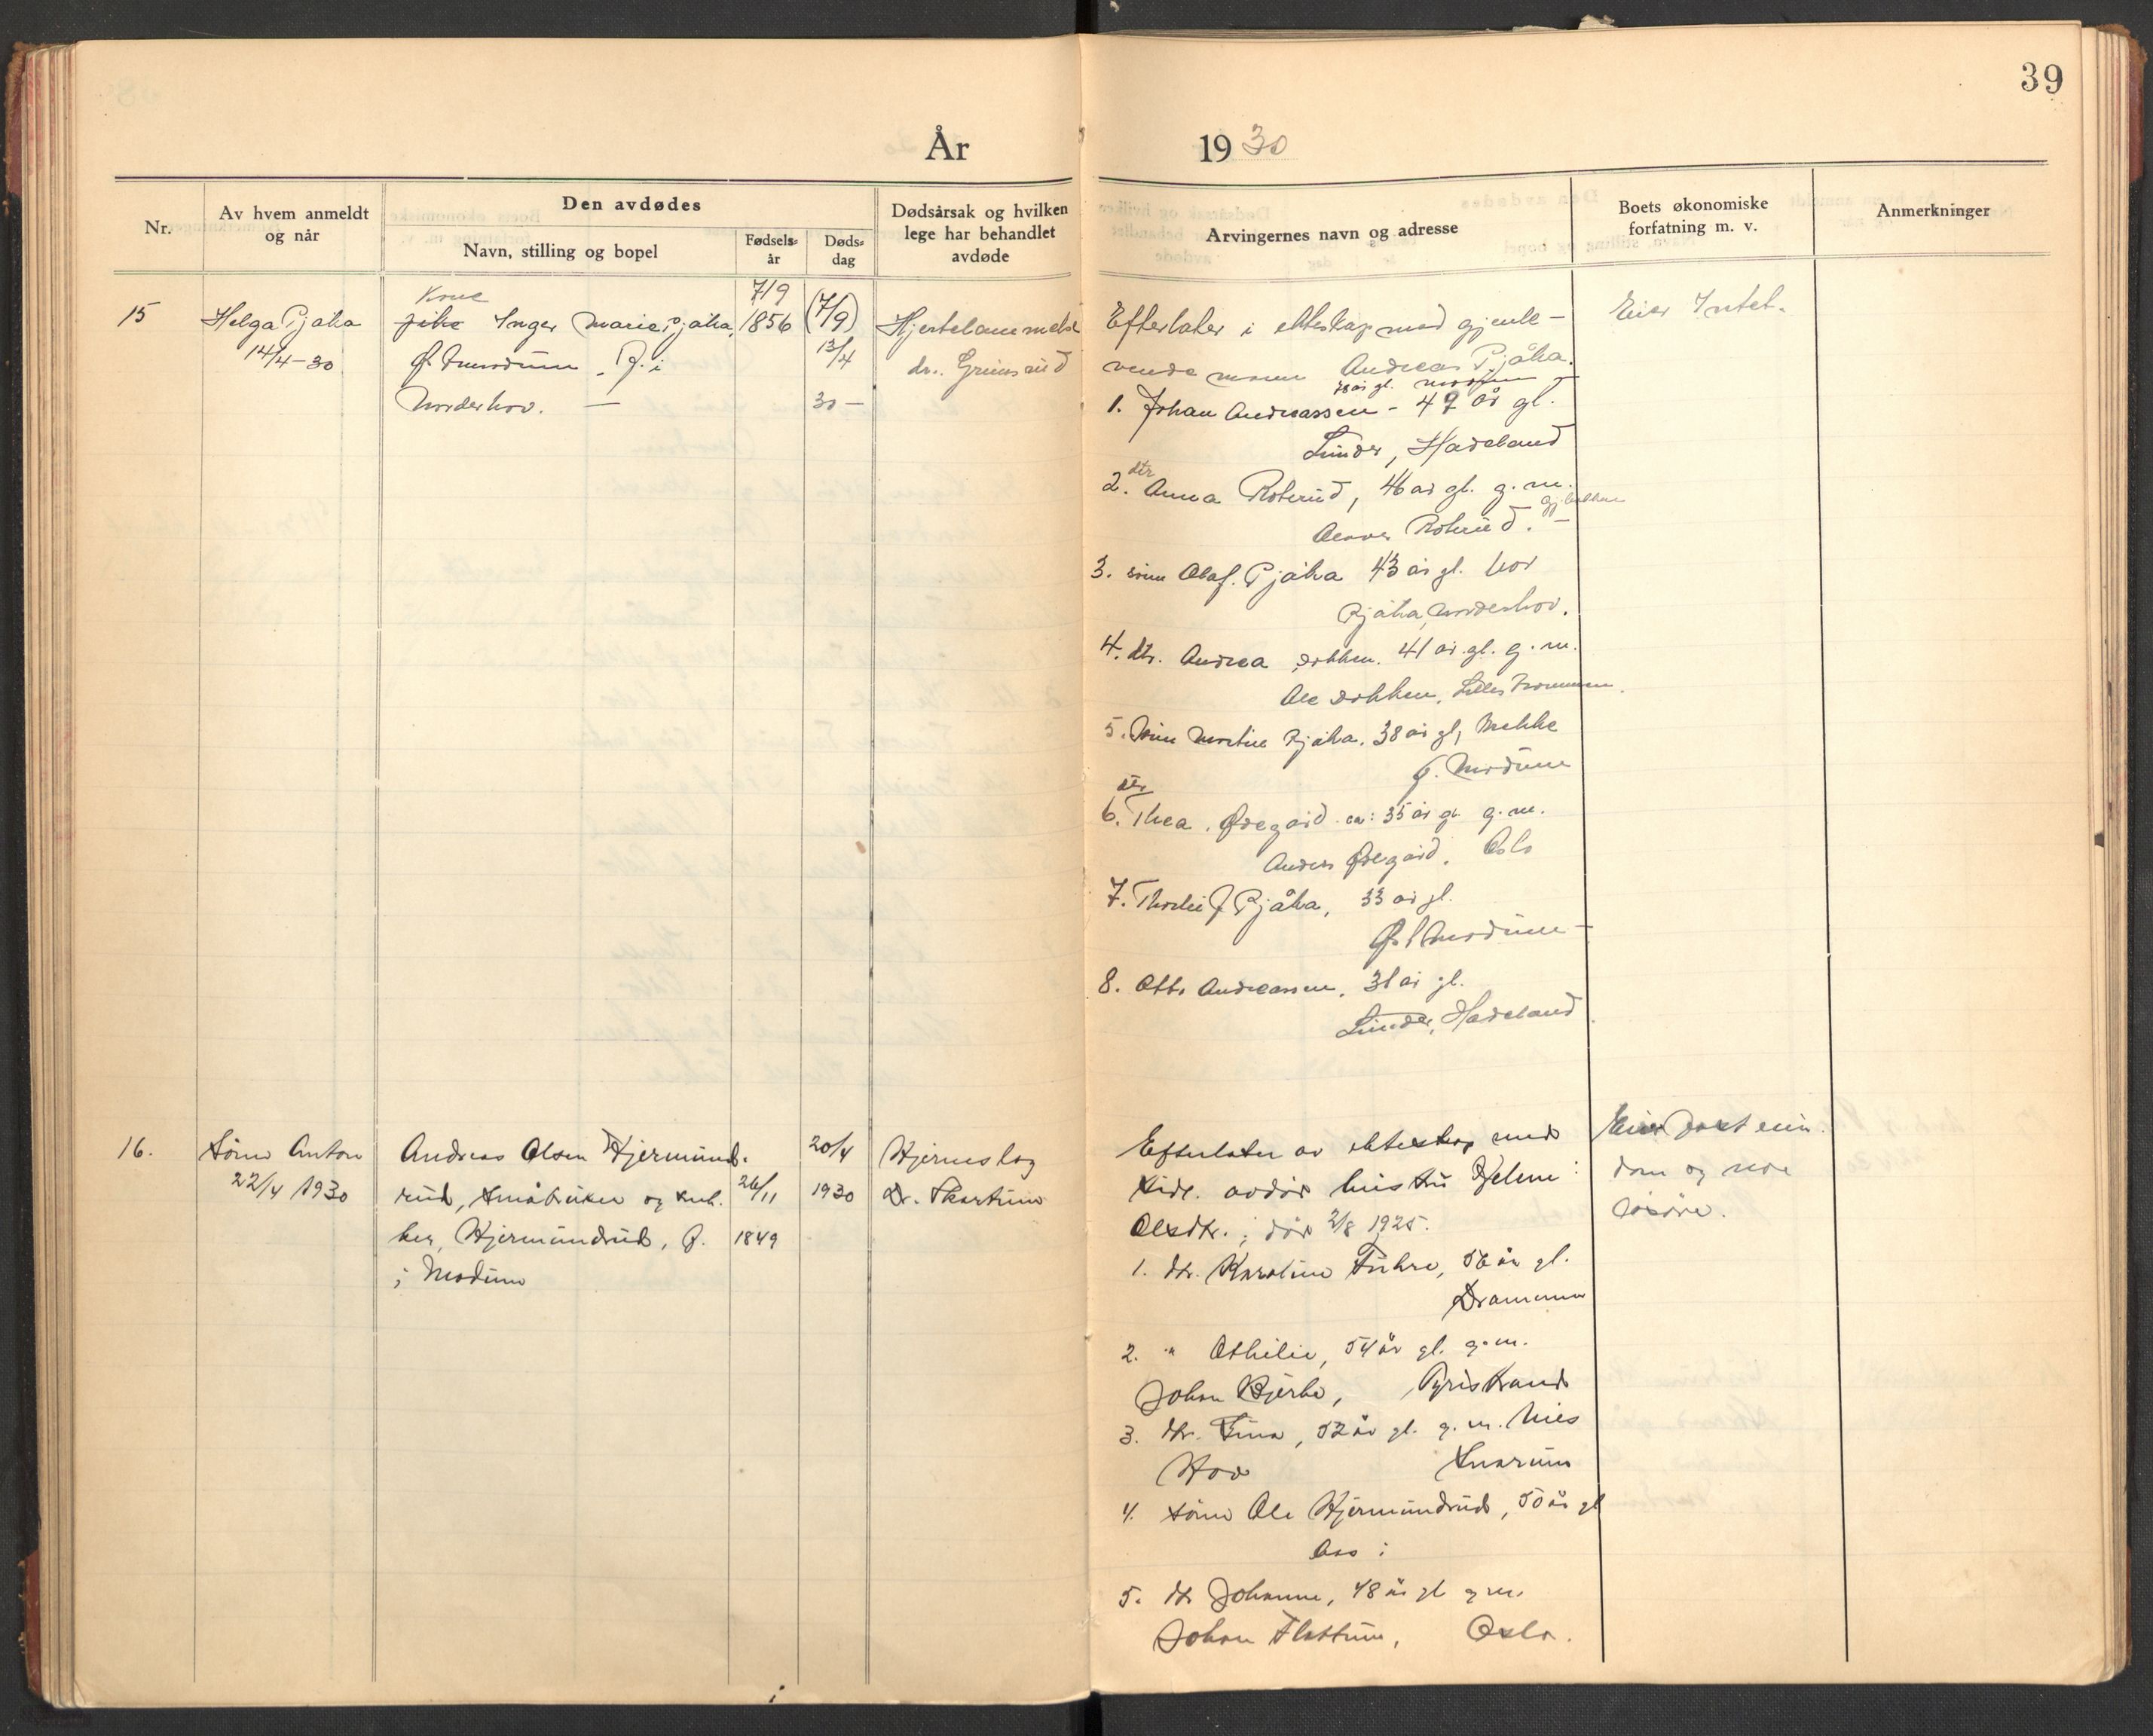 39
År 1930
Nr.
Av hvem anmeldt
og når
Den avdødes
Navn, stilling og bopel
Fødsels-
år
Døds-
dag
Dødsårsak og hvilken
lege har behandlet
avdøde
Arvingernes navn og adresse
Boets økonomiske
forfatning m. v.
Anmerkninger
15
Helga Pjåka
14/4-30
Kone
Inger Marie Pjåka
Ø. Modum, f. i
Norderhov. —
7/9
1856
(7/9)
13/4
30 —
Hjertelammelse
dr. Grimsrud
Efterlater i ekteskap med gjenle-
vende mann Andreas Pjåka.
78 år gl.
1. Johan Andreassen - 49 år gl.
Lunder, Hadeland
2. dtr Anna Roterud, 46 år gl. g. m.
Roterud. —
3. sønn Olaf Pjåka 43 år gl. bor
Pjåka, Norderhov.
4. dtr. Andrea Dokken. 41 år gl. g. m.
Ole Dokken, Lillestrømmen.
5. Sønn Martin Pjåka. 38 år gl, Brekke
Ø. Modum
dtr
6. Thea Ødegård ca: 35 år gl. g. m.
Anders Ødegård. Oslo
7. Thorleif Pjåka, 33 år gl.
Ø. Modum —
8. Otto Andreassen, 31 år gl.
Lunder, Hadeland
Eier Intet.
16.
Sønn Anton
22/4 1930
Andreas Olsen Hjermund-
rud, småbruker og enke-
, Hjermundrud, f.
i Modum
26/11
1849
20/4
1930
Hjerneslag
Dr. Skartum
Efterlater av ekteskap med
tidl. avdøe hustru Helene
Olsdtr. ; død 2/8 1925.
1. dtr. Karoline Fuhre, 56 år gl.
Drammen
2. " Othilie, 54 år gl. g. m.
Johan Bjerke, Tyristrand
3. dtr. Tina, 52 år gl. g. m. Nils
Hov Snarum
4. sønn Ole Hjermundrud, 50 år gl
Aas i
5. dtr Johanne, 48 år gl g m.
Johan Flattum, Oslo.
Eier fast eien-
dom og noe
løsøre.